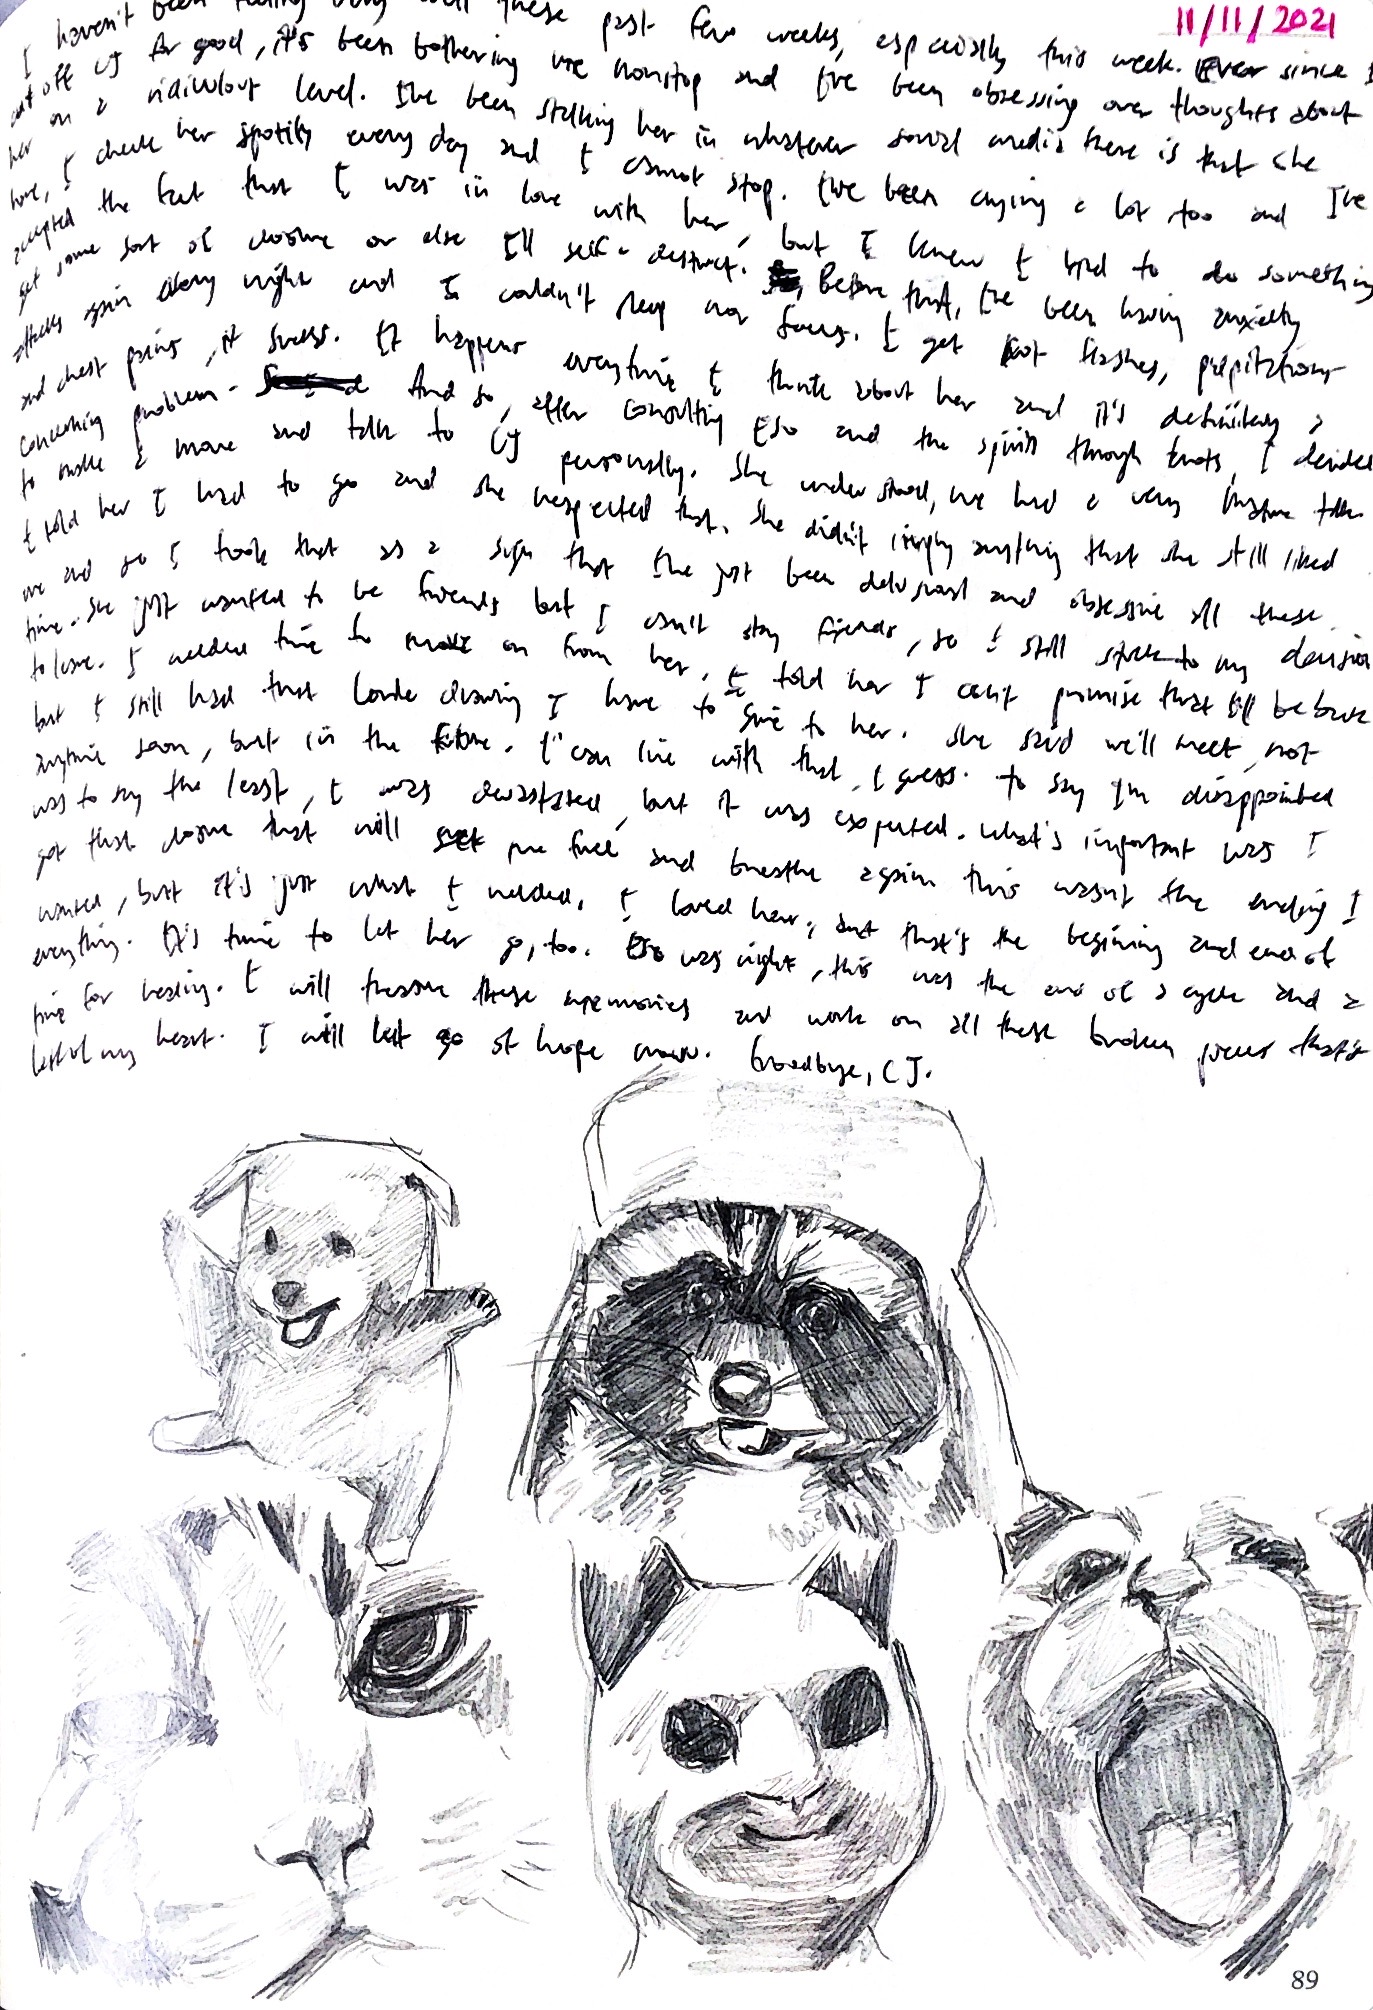 11/11/2021
I haven't been feeling very well these past few weeks, especially this week. Ever since I
cut off CJ for good, it's been bothering me nonstop and I've been obsessing over thoughts about
her on a ridiculous level. I've been stalking her in whatever social media there is that she
have, I check her spotify every day and I cannot stop. I've been crying a lot too and I've
accepted the fact that I was in love with her, but I knew I had to do something
get some sort of closure or else I'll self-destruct. Before this, I've been having anxiety
attacks again every night and I couldn't sleep nor focus. I get hot flashes, palpitations
and chest pains, it sucks. It happens everytime I think about her and it's definitely a
concerning problem. And so, after consulting Eso and the spirits through tarots, I decided
to make a move and talk to CJ personally. She understood, we had a very mature talk
I told her I had to go and she respected that. She didn't imply anything that she still liked
me and so I took that as a sign that I've just been delusional and obsessive all these
time. She just wanted to be friends but I can't stay friends, so I still stuck to my decision
to leave. I needed time to move on from her. I told her I can't promise that I'll be back
but I still had that Lorde drawing I have to give to her. She said we'll meet, not
anytime soon, but in the future. I can live with that, I guess. To say I'm disappointed
was to say the least, I was devastated, but it was expected. What's important was I
got that closure that will set me free and breathe again this wasn't the ending I
wanted, but it's just what I needed. I loved her, and that's the begining and end of
everything. It's time to let her go, too. Eso was right, this was the end of a cycle and a
time for healing. I will treasure these memories and work on all these broken pieces that's
left of my heart. I will let go of hope now. Goodbye, CJ.
89